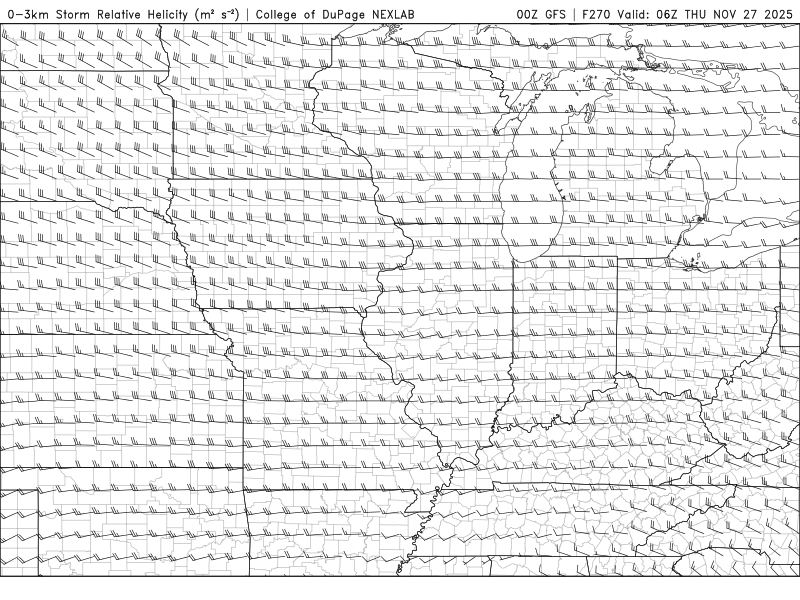 0-3km Storm Relative Helicity (m² s⁻²) | College of DuPage NEXLAB 00Z GFS | F270 Valid: 06Z THU NOV 27 2025